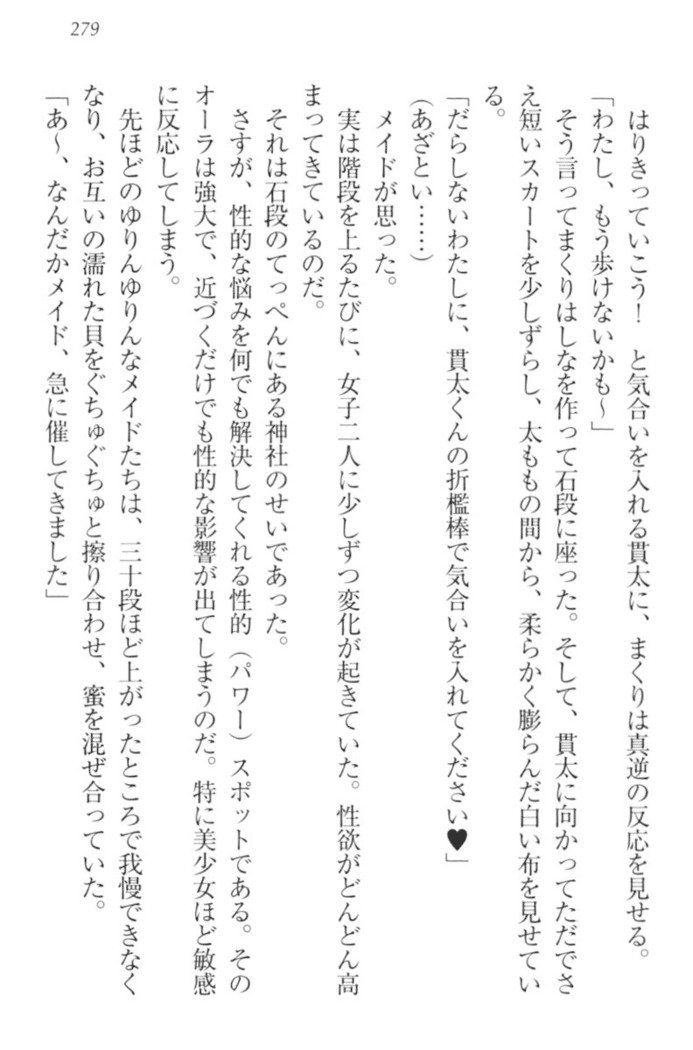 279
はりきっていこう！　と気合いを入れる貫太に、まくりは真逆の反応を見せる。
「わたし、もう歩けないかも～」
そう言ってまくりはしなを作って石段に座った。そして、貫太に向かってただでさ
え短いスカートを少しずらし、太ももの間から、柔らかく膨らんだ白い布を見せてい
る。
「だらしないわたしに、貫太くんの折檻棒で気合いを入れてください♥」
（あざとい……）
メイドが思った。
実は階段を上るたびに、女子二人に少しずつ変化が起きていた。性欲がどんどん高
まってきているのだ。
それは石段のてっぺんにある神社のせいであった。
さすが、性的な悩みを何でも解決してくれる性的（パワー）スポットである。その
オーラは強大で、近づくだけでも性的な影響が出てしまうのだ。特に美少女ほど敏感
に反応してしまう。
先ほどのゆりんゆりんなメイドたちは、三十段ほど上がったところで我慢できなく
なり、お互いの濡れた貝をぐちゅぐちゅと擦り合わせ、蜜を混ぜ合っていた。
「あ～、なんだかメイド、急に催してきました」